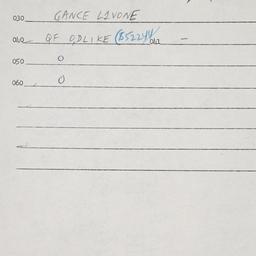 030 GANCE LIVONE
040 QF QDLIKE (B52244 042 -
050 0
060 0